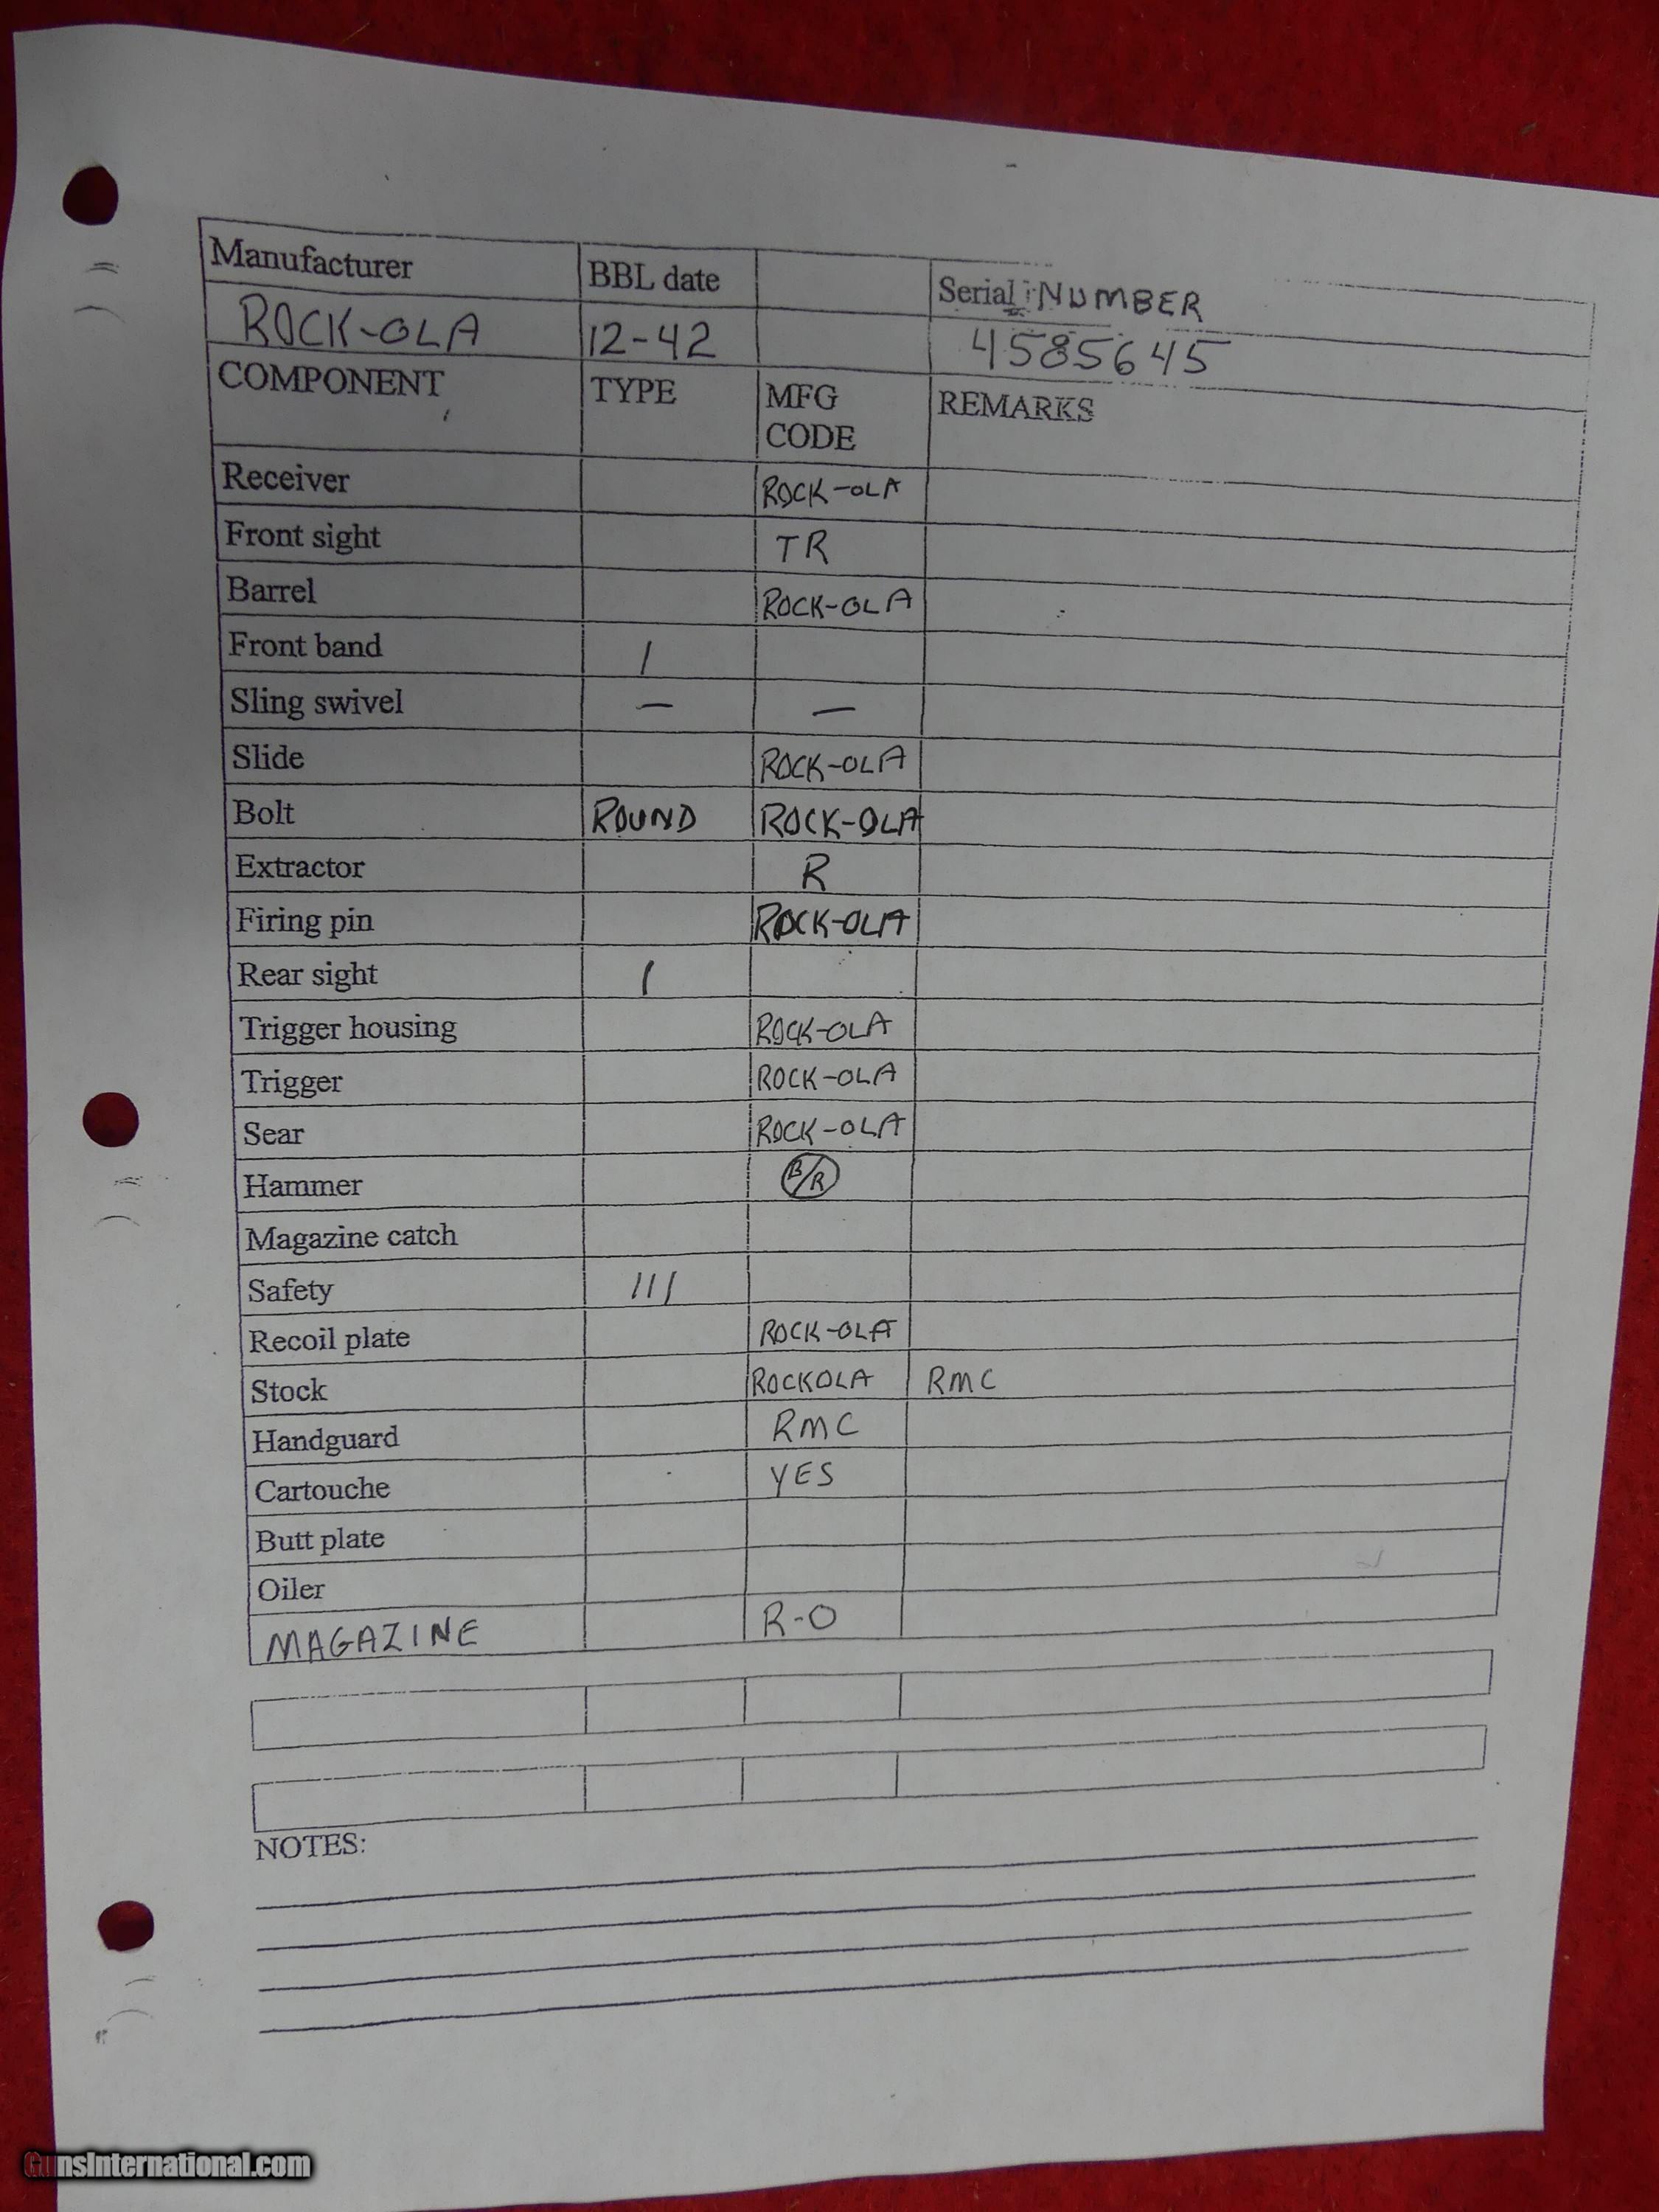 Manufacturer BBL date Serial NUMBER
ROCK-OLA 12-42 4585645
COMPONENT TYPE MFG CODE REMARKS
Receiver ROCK-OLA
Front sight TR
Barrel ROCK-OLA
Front band /
Sling swivel — —
Slide ROCK-OLA
Bolt ROUND ROCK-OLA
Extractor R
Firing pin ROCK-OLA
Rear sight /
Trigger housing ROCK-OLA
Trigger ROCK-OLA
Sear ROCK-OLA
Hammer B/R
Magazine catch
Safety ///
Recoil plate ROCK-OLA
Stock ROCKOLA RMC
Handguard RMC
Cartouche YES
Butt plate
Oiler
MAGAZINE R-O
NOTES:
GunsInternational.com